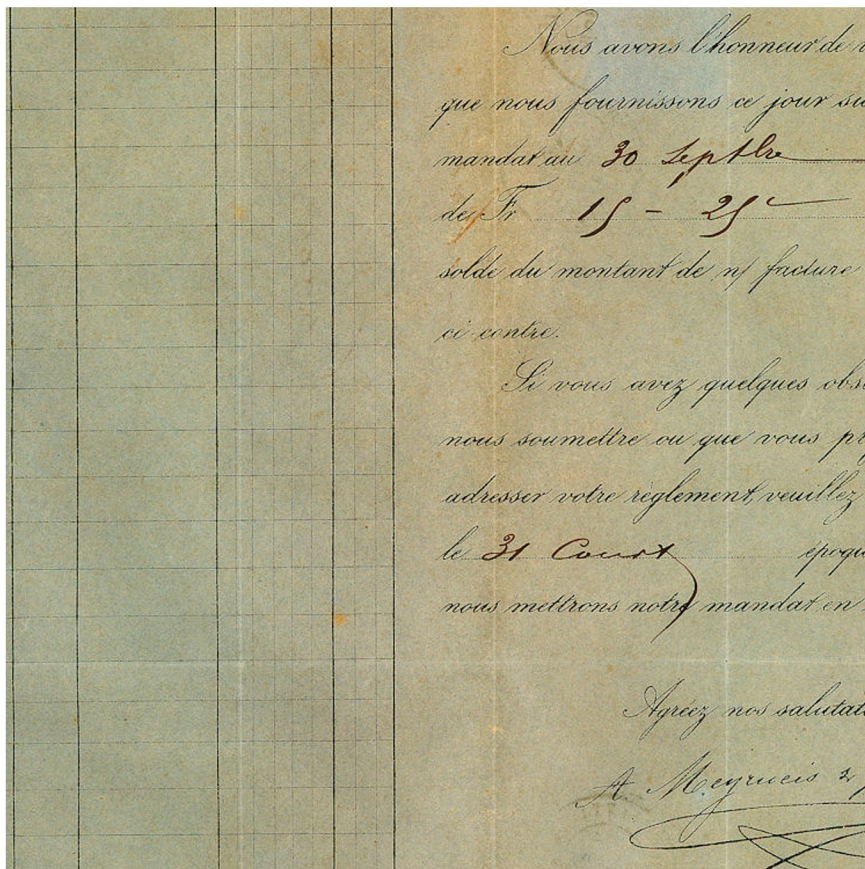 Nous avons l'honneur de
que nous fournissons ce jour su
mandat au 30 Septbre
de Fr 15 - 25c
solde du montant de n/ facture
ci-contre.
Si vous avez quelques obs
nous soumettre ou que vous pr
adresser votre règlement, veuillez
le 31 Court époqu
nous mettrons notre mandat en
Agréez nos salutat
A. Meyrueis